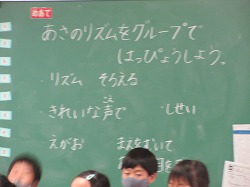 めあて
あさのリズムをグループで
はっぴょうしよう。
・リズム そろえる
・きれいな声で ・しせい
こえ
・えがお まえをむいて